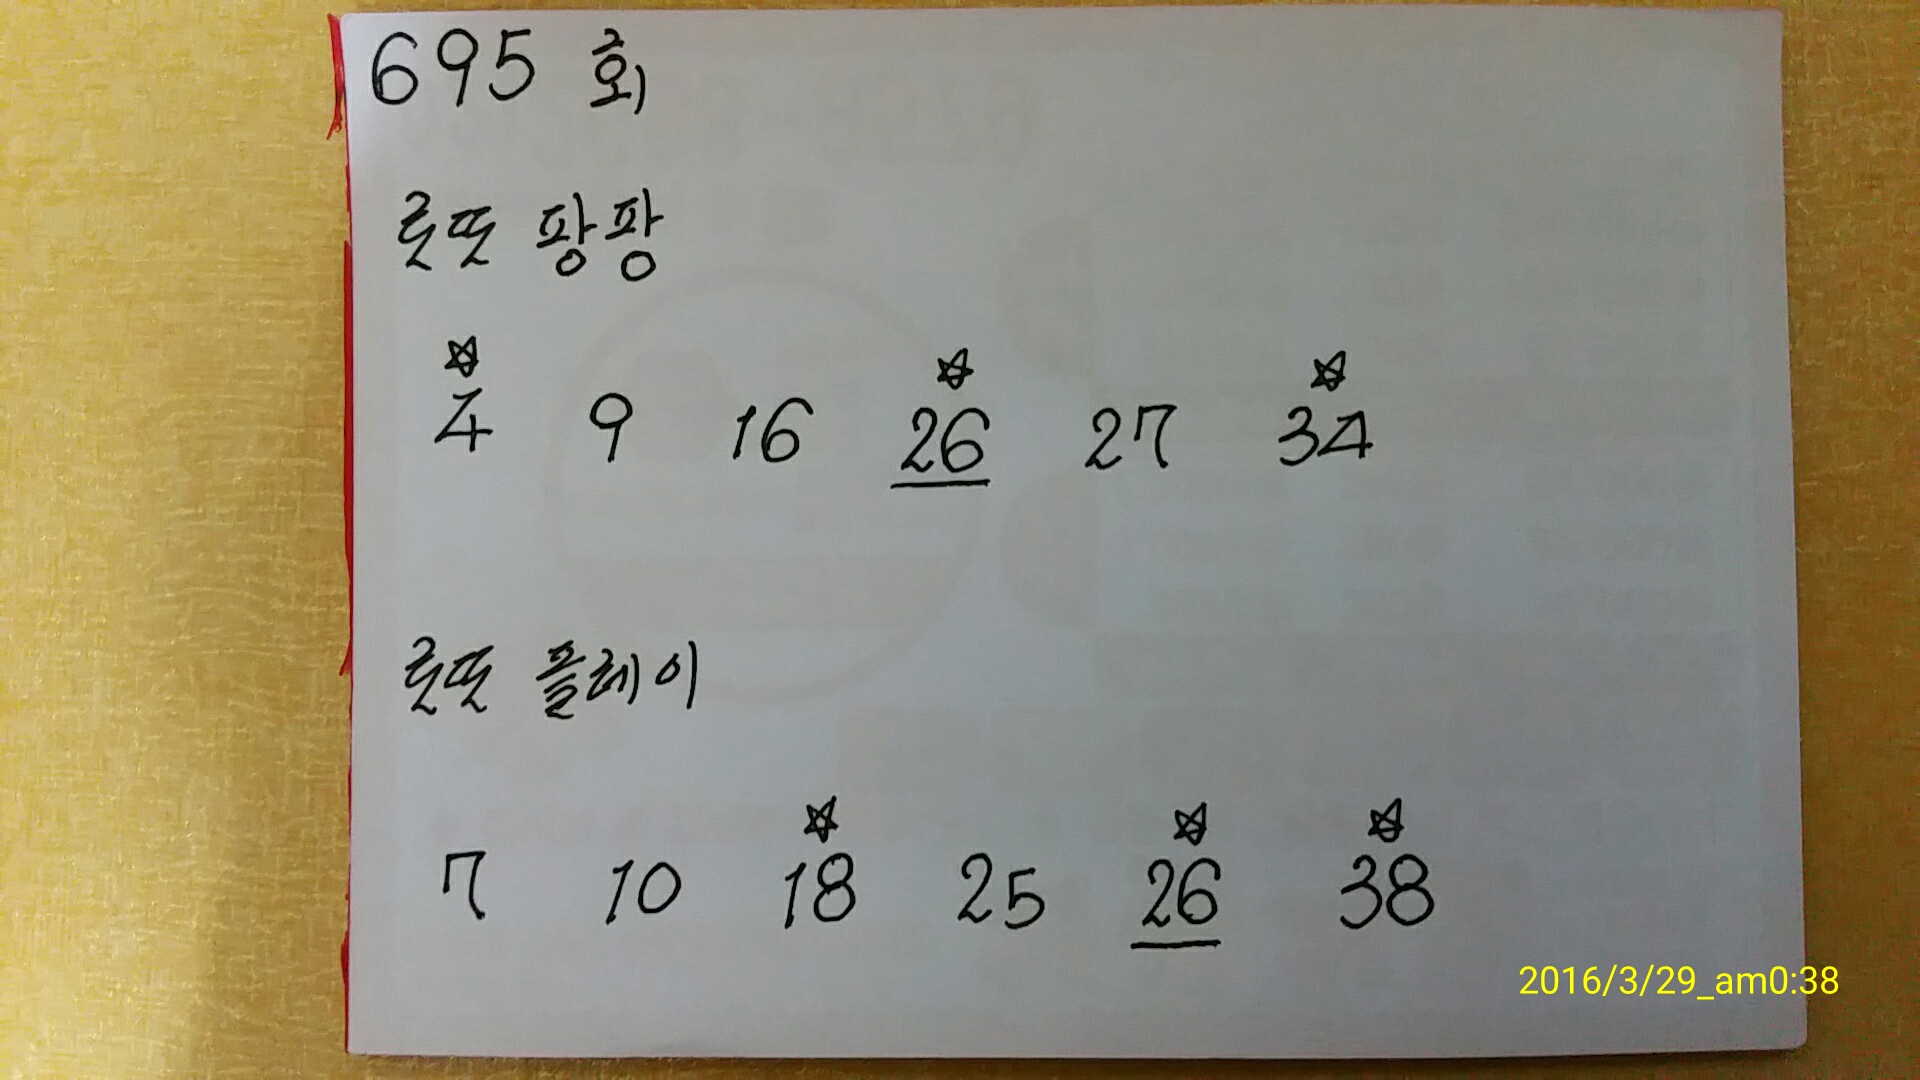 695 회
로또 팡팡
☆ ☆ ☆
4 9 16 26 27 34
로또 플레이
☆ ☆ ☆
7 10 18 25 26 38
2016/3/29_am0:38